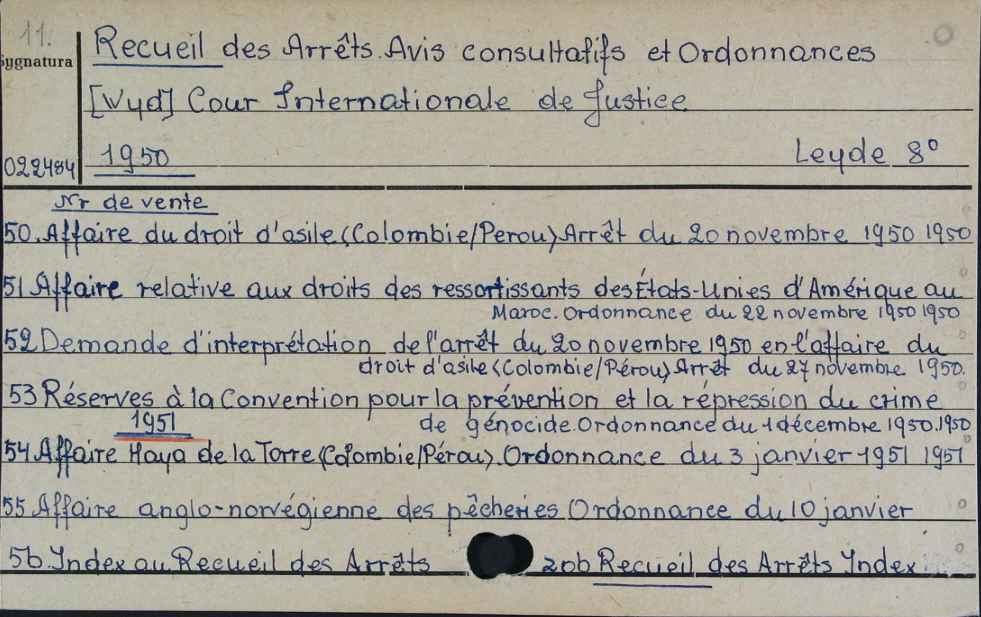 11.
Recueil des Arrêts. Avis consultatifs et Ordonnances
Sygnatura
[Wyd] Cour Internationale de Justice
022484 1950 Leyde 8°
Nr de vente
50. Affaire du droit d'asile (Colombie/Perou) Arrêt du 20 novembre 1950 1950
51 Affaire relative aux droits des ressortissants des États-Unies d'Amérique au
Maroc. Ordonnance du 22 novembre 1950 1950
52 Demande d'interprétation de l'arrêt du 20 novembre 1950 en l'affaire du
droit d'asile (Colombie/Pérou) Arrêt du 27 novembre 1950.
53 Réserves à la Convention pour la prévention et la répression du crime
de génocide. Ordonnance du 1 décembre 1950. 1950
1951
54 Affaire Haya de la Torre (Colombie/Pérou). Ordonnance du 3 janvier 1951 1951
55 Affaire anglo-norvégienne des pêcheries Ordonnance du 10 janvier
56 Index au Recueil des Arrêts zob Recueil des Arrêts Index.